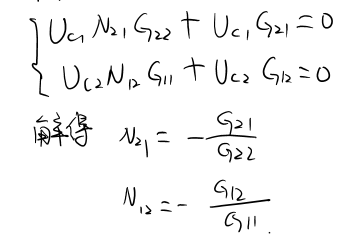 U_{C1} N_{21} G_{22} + U_{C1} G_{21} = 0
U_{C2} N_{12} G_{11} + U_{C2} G_{12} = 0
解得 N_{21} = - \frac{G_{21}}{G_{22}}
N_{12} = - \frac{G_{12}}{G_{11}}